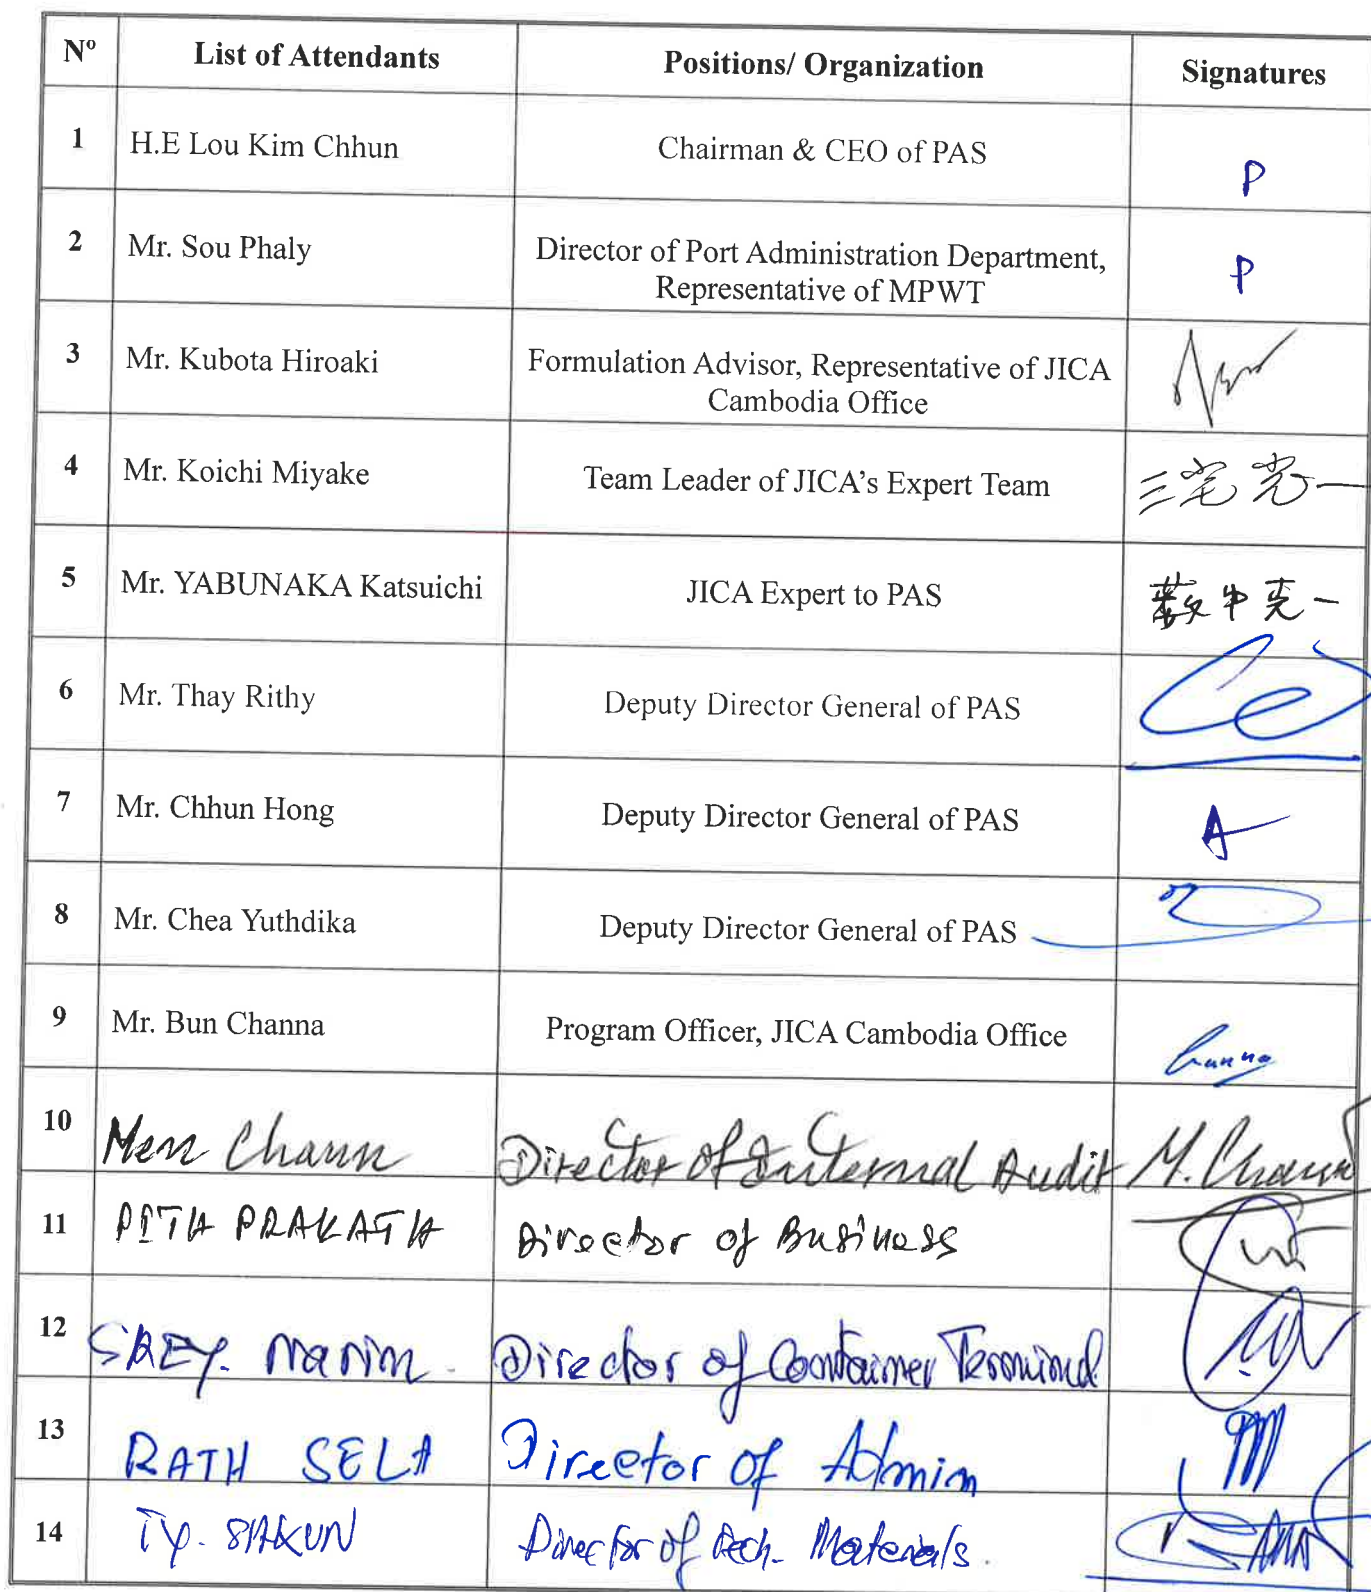 Nº List of Attendants Positions/ Organization Signatures
1 H.E Lou Kim Chhun Chairman & CEO of PAS P
2 Mr. Sou Phaly Director of Port Administration Department,
Representative of MPWT P
3 Mr. Kubota Hiroaki Formulation Advisor, Representative of JICA
Cambodia Office
4 Mr. Koichi Miyake Team Leader of JICA's Expert Team 三宅光一
5 Mr. YABUNAKA Katsuichi JICA Expert to PAS 薮中克一
6 Mr. Thay Rithy Deputy Director General of PAS
7 Mr. Chhun Hong Deputy Director General of PAS
8 Mr. Chea Yuthdika Deputy Director General of PAS
9 Mr. Bun Channa Program Officer, JICA Cambodia Office Channa
10 Men Chann Director of Internal Audit M. Chann
11 PITH PRAKATH Director of Business
12 SREY. Narin Director of Container Terminal
13 RATH SELA Director of Admin
14 Ty. SAKUN Director of Materials.